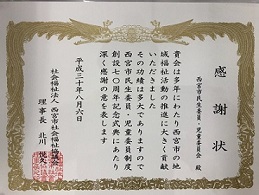 感謝状
西宮市民生委員・児童委員会 殿
貴会は多年にわたり西宮市の地
域福祉活動の推進に大きく貢献
いただきました
その功績は多大でありますので
西宮市民生委員・児童委員制度
創設七〇周年記念式典にあたり
深く感謝の意を表します
平成三十年八月六日
社会福祉法人 西宮市社会福祉協議会
理事長 北川